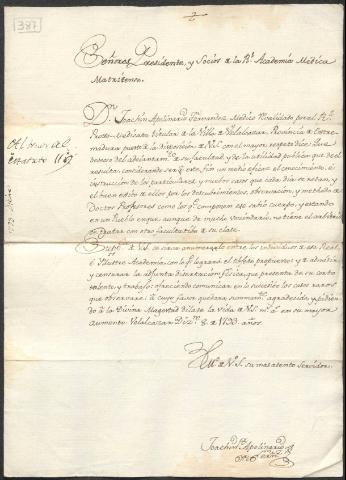 387
2
Señores Presidente, y Socios de la Rl. Academia Médica
Matritense.
Dn. Joachin Apolinario Fernandez Medico Revalidado por el Rl.
Proto-Medicato titular de la Villa de Velalcazar, Provincia de Estre-
madura puesto a la disposicion de V.S. con el mayor respeto dice: Que
deseoso del adelantamto. de su facultad, y de la utilidad publica que de el
resulta; considerando ser a este fin un medio el conocimiento, é
instruccion de los particulares, y muchos casos que cada dia se notan, y
el buen exito de ellos por los descubrimientos, observacion, y methodo de
Doctos Profesores como los qe. componen ese sabio cuerpo, y estando
en un Pueblo en que, aunque de mucho vecindario, no tiene el arbitrio
de tratar con otro facultativo de su clase.
Al tenor del
estatuto 11
Suppca. a V.S. se sirva enumerarle entre los individuos de esa Real,
é Ilustre Academia, con lo qe. logrará el objeto propuesto; y a admitir,
y censurar la adjunta disertacion Fisica, que presenta de su corto
talento, y trabajo: ofreciendo comunicar en lo sucesivo los casos raros
que observare: á cuyo favor quedará summamte. agradecido, y pidiendo
á la Divina Magestad dilate la vida de V.S. ms. as. en su mayor
aumento. Velalcazar Dizre. 8. de 1793. años.
B.L.M. de V.S. su mas atento Servidor
Joachin Apolinario
Fernz.